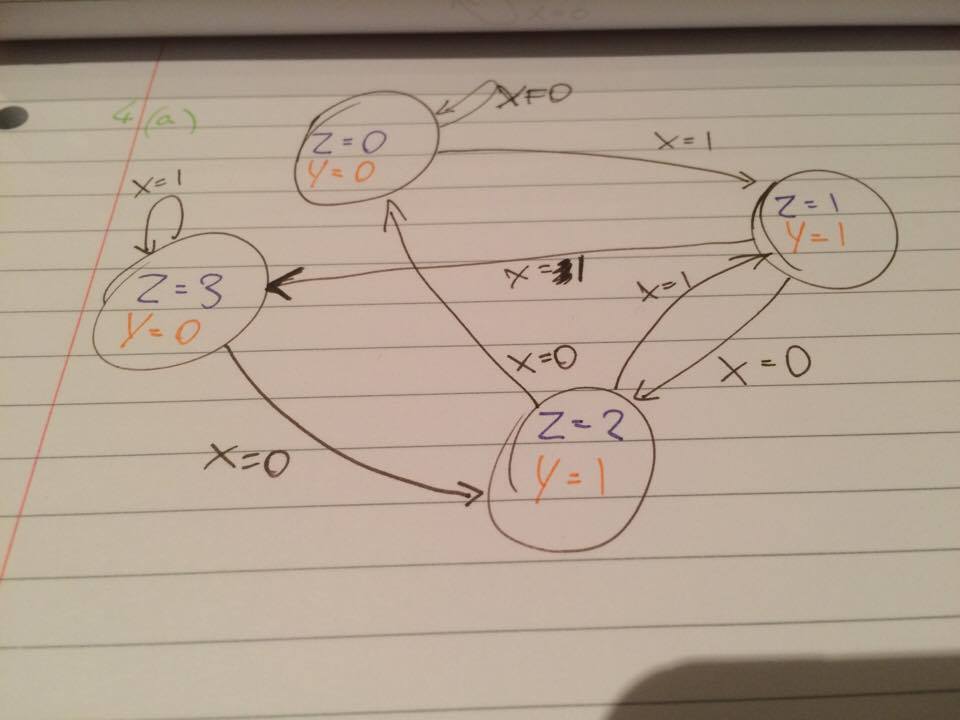 x=0
4 (a)
x=0
z=0
y=0
x=1
x=1
z=1
y=1
z=3
y=0
x=1
x=1
x=0
x=0
z=2
y=1
x=0